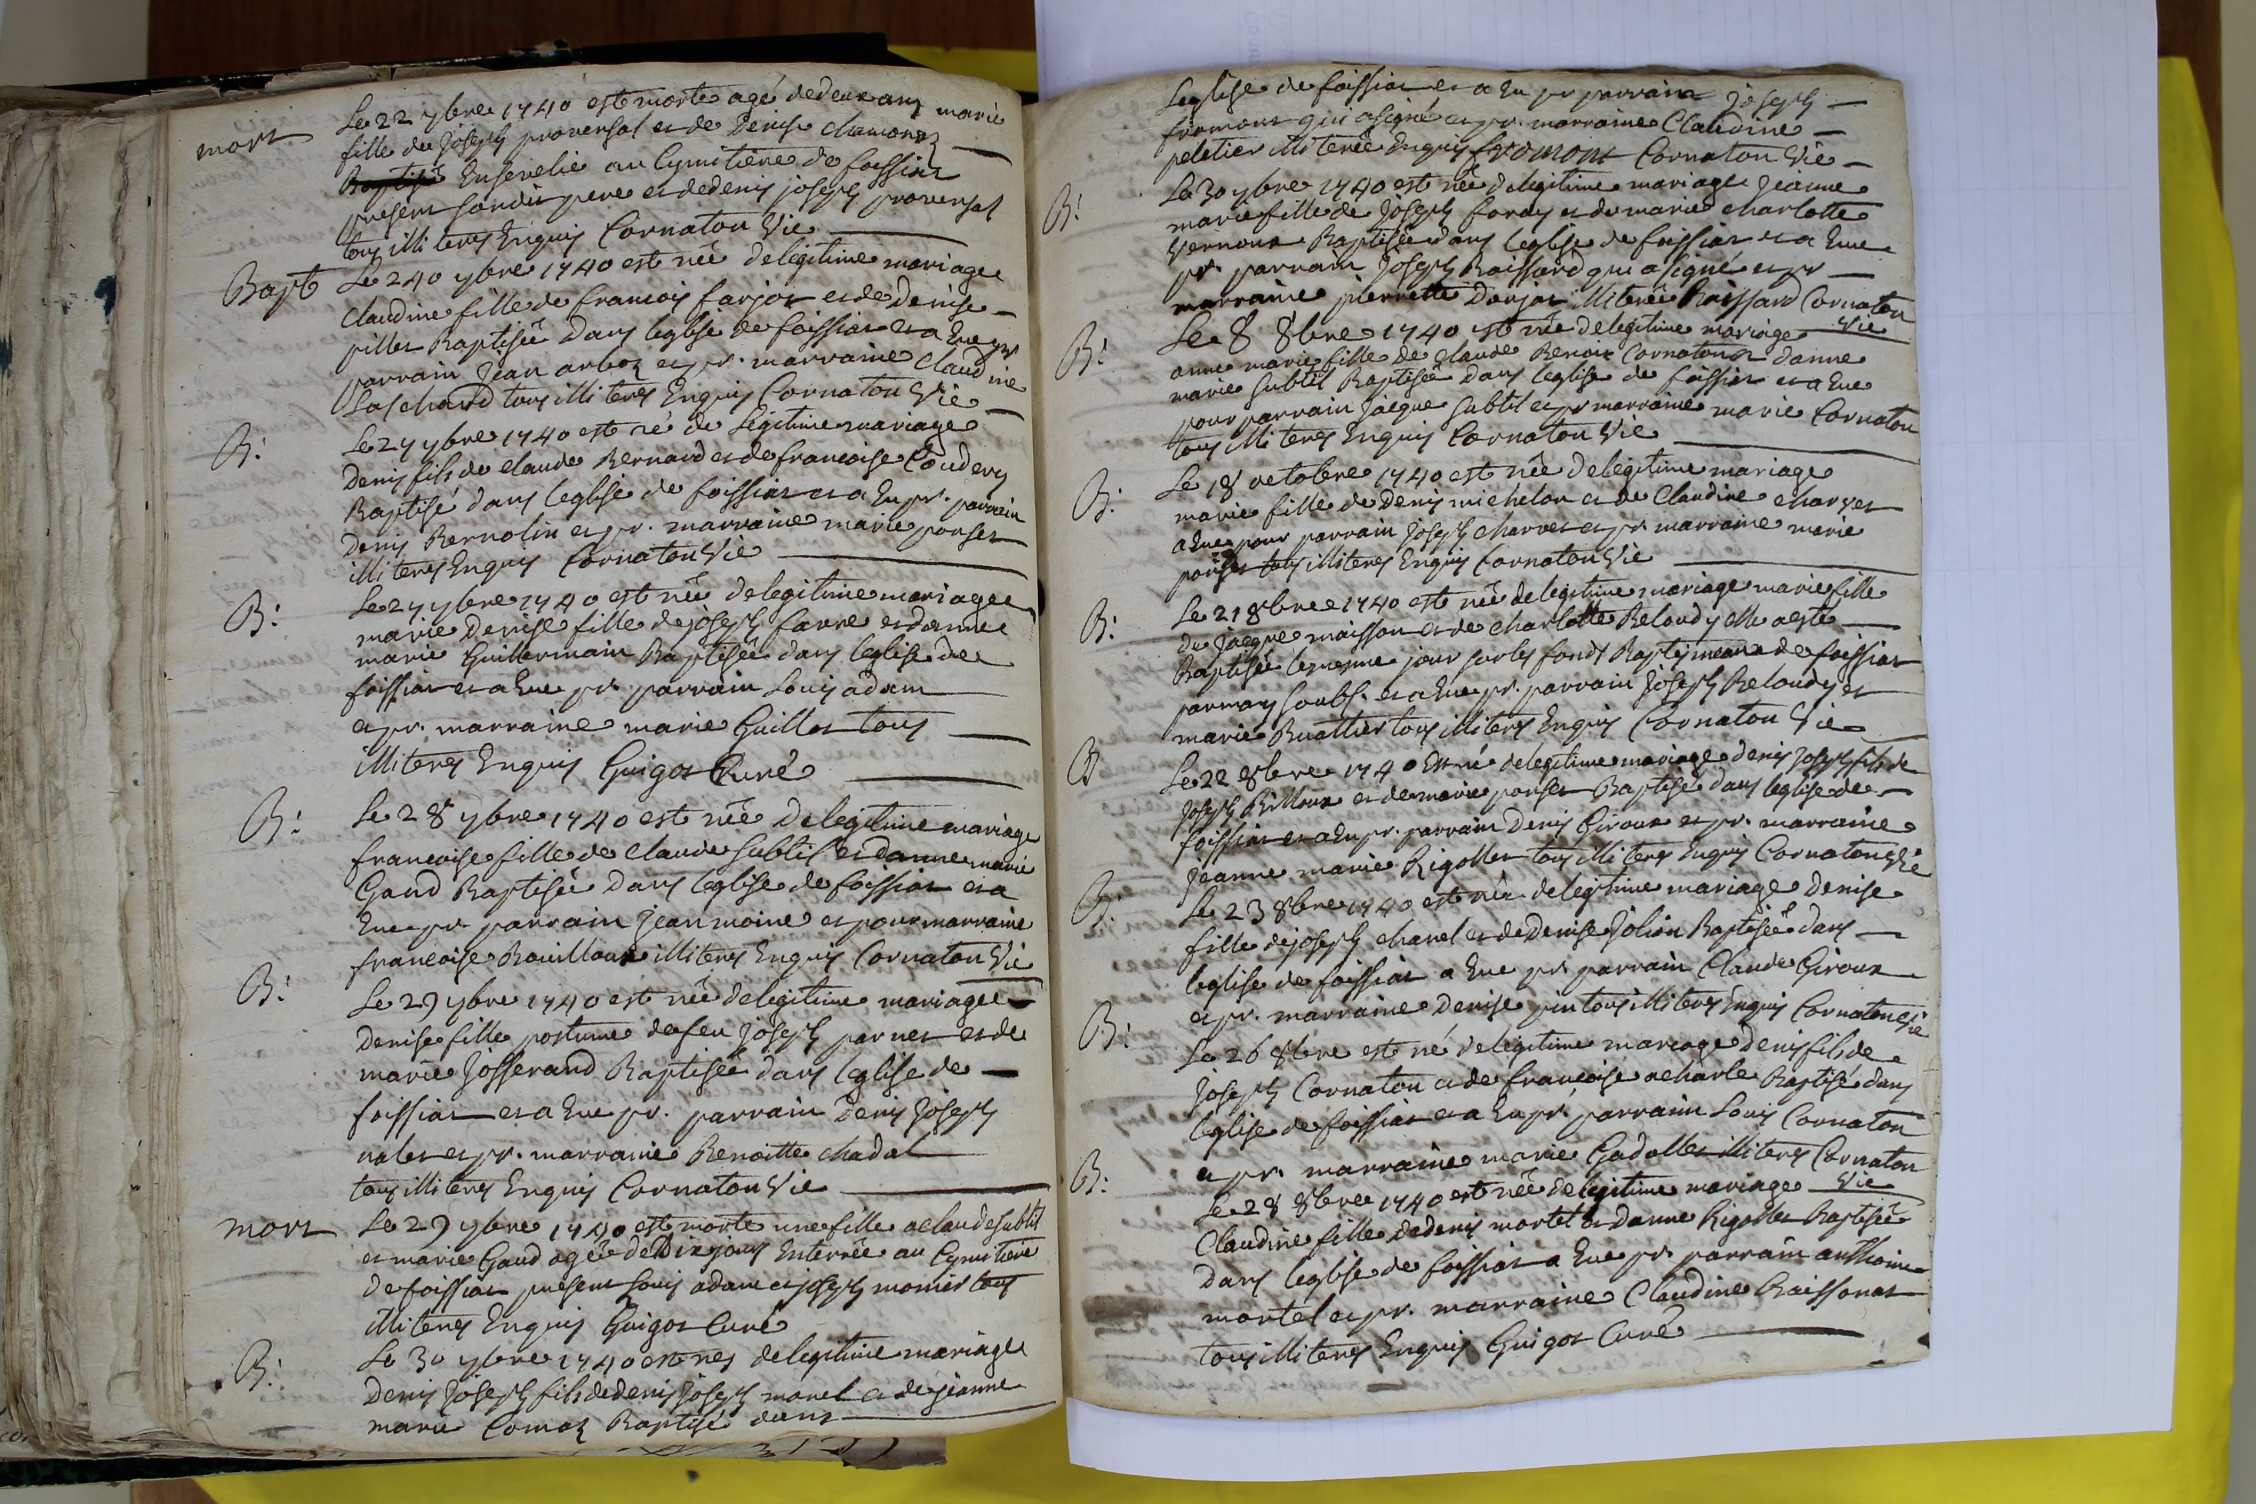 mort
Le 22 7bre 1740 est morte agé de deux ans marie
fille de Joseph provensal et de Denise chamonaz
Baptisé Ensevelie au Cymitiere de foissiat
present sondit pere et de denis joseph provensal
tous illiteres Enquis Cornaton Vic
Bapt Le 24 7bre 1740 est née de legitime mariage
Claudine fille de francois farjot et de Denise
piller Baptisée Dans leglise de foissiat et a Eue pr
parrain Jean arboz et pr. marraine Claudine
Laschard tous illiteres Enquis Cornaton Vic
B: Le 27 7bre 1740 est né de Legitime mariage
Denis fils de claude Bernard et de francoise Coudery
Baptisé dans leglise de foissiat et a Eu pr. parrain
Denis Bernolin et pr. marraine marie ponset
illiteres Enquis Cornaton Vic
B: Le 27 7bre 1740 est née de legitime mariage
marie Denise fille de joseph favre et danne
marie Guillermain Baptisée dans leglise de
foissiat et a Eue pr. parrain Louis adam
et pr. marraine marie Guillot tous
illiteres Enquis Guigot Curé
B: Le 28 7bre 1740 est née De legitime mariage
francoise fille de claude subtil et danne marie
Gaud Baptisée Dans leglise de foissiat et a
Eue pr. parrain jean moine et pour marraine
francoise Rouilloux illiteres Enquis Cornaton Vic
B: Le 29 7bre 1740 est née de legitime mariage
Denise fille postume de feu joseph parnet et de
marie Josserand Baptisée dans leglise de
foissiat et a Eue pr. parrain Denis Joseph
nalet et pr. marraine Benoitte chadal
tous illiteres Enquis Cornaton Vic
mort Le 29 7bre 1740 est morte une fille a claude subtil
et marie Gaud agée de Dix jours Enterrée au Cymitiere
de foissiat present Louis adam et joseph monier tous
illiteres Enquis Guigot Curé
B: Le 30 7bre 1740 est nes de legitime mariage
Denis Joseph fils de denis joseph morel et de jeanne
marie Comaz Baptisé dans
Leglise de foissiat et a Eu pr parrain joseph
fromont qui a signé et pr. marraine Claudine
peletier illiterée Enquis fromont Cornaton Vic
B: Le 30 7bre 1740 est née de legitime mariage jeanne
marie fille de joseph foray et de marie charlotte
Vernoux Baptisée dans leglise de foissiat et a Eue
pr. parrain Joseph Raissard qui a signé et pr
marraine pierrette Danjat illiterée Raissard Cornaton
Vic
B: Le 8 8bre 1740 est née de legitime mariage
anne marie fille de claude Benoit Cornaton et danne
marie subtil Baptisée dans leglise de foissiat et a Eue
pour parrain jacque subtil et pr marraine marie Cornaton
tous illiteres Enquis Cornaton Vic
B: Le 18 octobre 1740 est née de legitime mariage
marie fille de Denis michelon et de Claudine charvet
a Eue pour parrain joseph charvet et pr. marraine marie
ponset tous illiteres Enquis Cornaton Vic
B: Le 21 8bre 1740 est née de legitime mariage marie fille
de jacque maisson et de charlotte Beloudy elle a esté
Baptisée le mesme jour sur les fonds Baptismeaux de foissiat
par moy soubs. et a Eue pr. parrain joseph Beloudy et
marie Buattier tous illiteres Enquis Cornaton Vic
B Le 22 8bre 1740 Est né de legitime mariage denis joseph fils de
joseph Billoux et de marie ponset Baptisé dans leglise de
foissiat et a Eu pr. parrain Denis Giroux et pr. marraine
jeanne marie Rigollet tous illiteres Enquis Cornaton Vic
B: Le 23 8bre 1740 est née de legitime mariage Denise
fille de joseph chanel et de Denise Jolion Baptisée dans
leglise de foissiat a Eue pr. parrain Claude Giroux
et pr. marraine Denise pin tous illiteres Enquis Cornaton Vic
B: Le 26 8bre est né de legitime mariage Denis fils de
joseph Cornaton et de francoise acharle Baptisé dans
leglise de foissiat et a Eu pr. parrain Louis Cornaton
et pr. marraine marie Gadollet illiteres Cornaton
Vic
B: Le 28 8bre 1740 est née de legitime mariage
Claudine fille de denis mortel et Danne Rigollet Baptisée
Dans leglise de foissiat a Eue pr. parrain anthoine
mortel et pr. marraine Claudine Raissonat
tous illiteres Enquis Guigot Curé